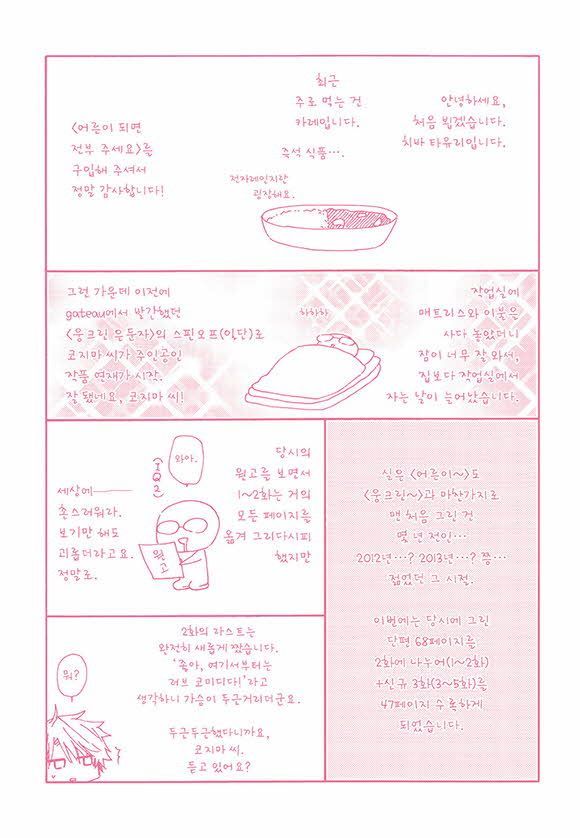 안녕하세요,
처음 뵙겠습니다.
치바 타유리입니다.
최근
주로 먹는 건
카레입니다.
즉석 식품….
전자레인지란
굉장해요.
〈어른이 되면
전부 주세요〉를
구입해 주셔서
정말 감사합니다!
작업실에
매트리스와 이불을
사다 놓았더니
잠이 너무 잘 와서,
집보다 작업실에서
자는 날이 늘어났습니다.
하하하
그런 가운데 이전에
gateau에서 발간했던
〈웅크린 은둔자〉의 스핀오프(일단)로
코지마 씨가 주인공인
작품 연재가 시작.
잘 됐네요, 코지마 씨!
실은 〈어른이~〉도
〈웅크린~〉과 마찬가지로
맨 처음 그린 건
몇 년 전인…
2012년…? 2013년…? 쯤…
젊었던 그 시절.
이번에는 당시에 그린
단편 68페이지를
2화에 나누어(1~2화)
+신규 3화(3~5화)를
47페이지 수록하게
되었습니다.
당시의
원고를 보면서
1~2화는 거의
모든 페이지를
옮겨 그리다시피
했지만
와아.
(IQ2)
원고
세상에――
촌스러워라.
보기만 해도
괴롭더라고요.
정말로.
2화의 라스트는
완전히 새롭게 짰습니다.
'좋아, 여기서부터는
러브 코미디다!'라고
생각하니 가슴이 두근거리더군요.
두근두근했다니까요,
코지마 씨.
듣고 있어요?
뭐?